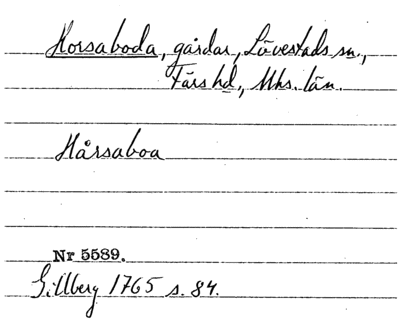 Horsaboda, gårdar, Lövestads sn.,
Färs hd, Mhs. län.
Hårsaboa
Nr 5589.
Gillberg 1765 s. 84.